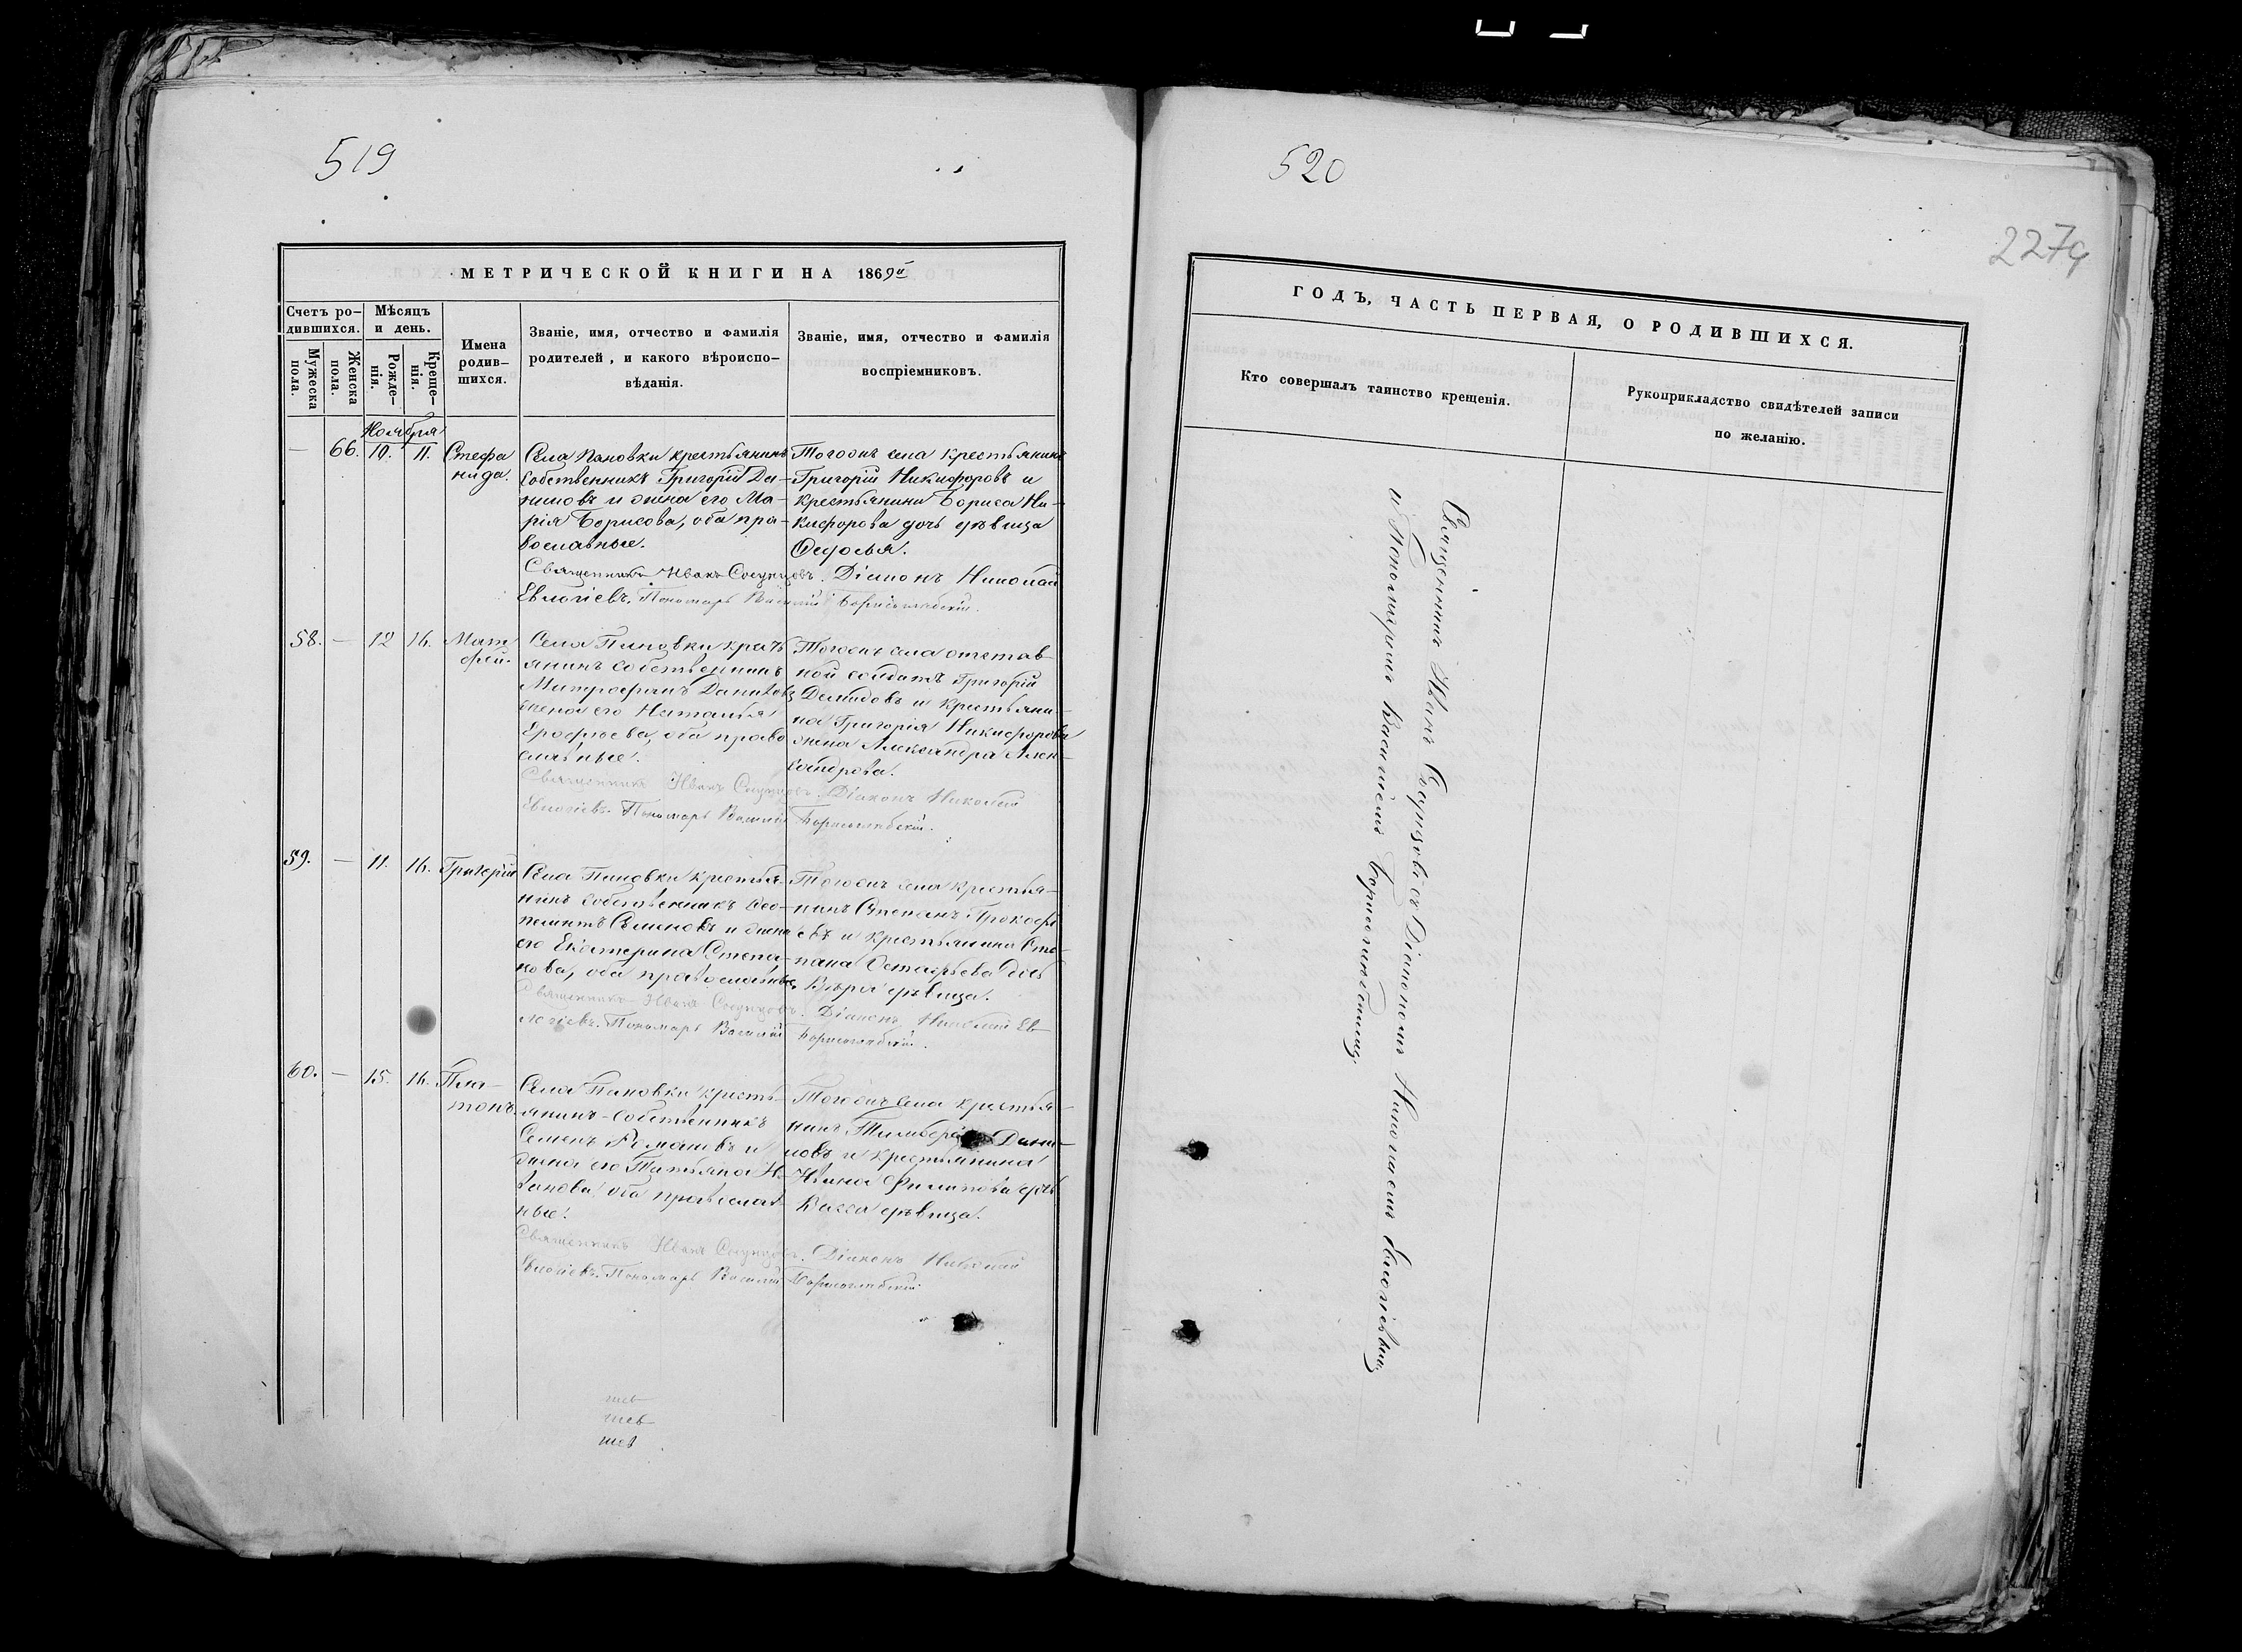 519
МЕТРИЧЕСКОЙ КНИГИ НА 1869й
Счетъ ро-
дившихся.
Мѣсяцъ
и день.
Имена
родив-
шихся.
Званіе, имя, отчество и фамилія
родителей, и какого вѣроиспо-
вѣданія.
Званіе, имя, отчество и фамилія
воспріемниковъ.
Мужеска
пола.
Женска
пола.
Рожде-
нія.
Креще-
нія.
Ноября
— 66. 10. 11.
Стефа
нида.
Села Пановки крестьянинъ
собственникъ Григорій Да-
ниловъ и жена его Ма-
рія Борисова, оба пра-
вославные.
Тогоонъ села крестьянинъ
Григорій Никифоровъ и
крестьянина Бориса Ни-
кифорова дочь дѣвица
Ѳедосья.
Священникъ Иванъ Сосунцовъ. Діаконъ Николай
Евлогіевъ. Пономарь Василій Борисоглѣбскій.
58. — 12 16.
Мат
фей.
Села Пановки крест
янинъ собственникъ
Митрофанъ Даниловъ
жена его Наталья
Ерофѣева, оба право
славные.
Тогоонъ села отстав-
ной солдатъ Григорій
Демидовъ и крестьяни-
на Григорія Никифорова
жена Александра Алек-
сандрова.
Священникъ Иванъ Сосунцовъ. Діаконъ Николай
Евлогіевъ. Пономарь Василій Борисоглѣбскій.
59. — 11. 16. Григорій
Села Пановки крестья-
нинъ собственникъ Ѳео-
пемптъ Семеновъ и жена
его Екатерина Степа-
нова, оба православные
Тогоонъ села крестья-
нинъ Степанъ Прокофь
евъ и крестьянина Сте-
пана Астафьева дочь
Вѣра дѣвица.
Священникъ Иванъ Сосунцовъ. Діаконъ Николай Ев-
логіевъ. Пономарь Василій Борисоглѣбскій.
60. — 15. 16.
Пла-
тонъ.
Села Пановки кресть-
янинъ-собственникъ
Семенъ Романовъ и
жена его Татьяна И-
ванова оба православ-
ные.
Тогоонъ села крестья-
нинъ Дани-
ловъ и крестьянина
Ивана Филипова дочь
Васса дѣвица.
Священникъ Иванъ Сосунцовъ. Діаконъ Николай
Евлогіевъ. Пономарь Василій Борисоглѣбскій.
520
227
ГОДЪ, ЧАСТЬ ПЕРВАЯ, О РОДИВШИХСЯ.
Кто совершалъ таинство крещенія.
Рукоприкладство свидѣтелей записи
по желанію.
Священникъ Иванъ Сосунцовъ съ Діакономъ Николаемъ Евлогіевымъ
и Пономаремъ Василіемъ Борисоглѣбскимъ.